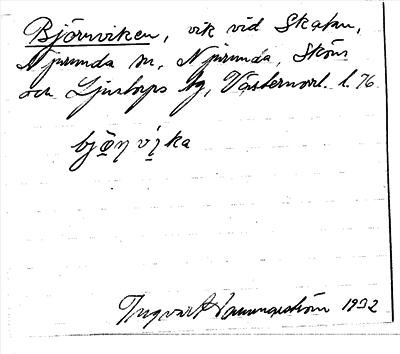 Björnviken, vik vid Skatan,
Njurunda sn, Njurunda, Sköns
och Ljustorps tg, Västernorl. l. 76.
björn vika
Ingvar 1932